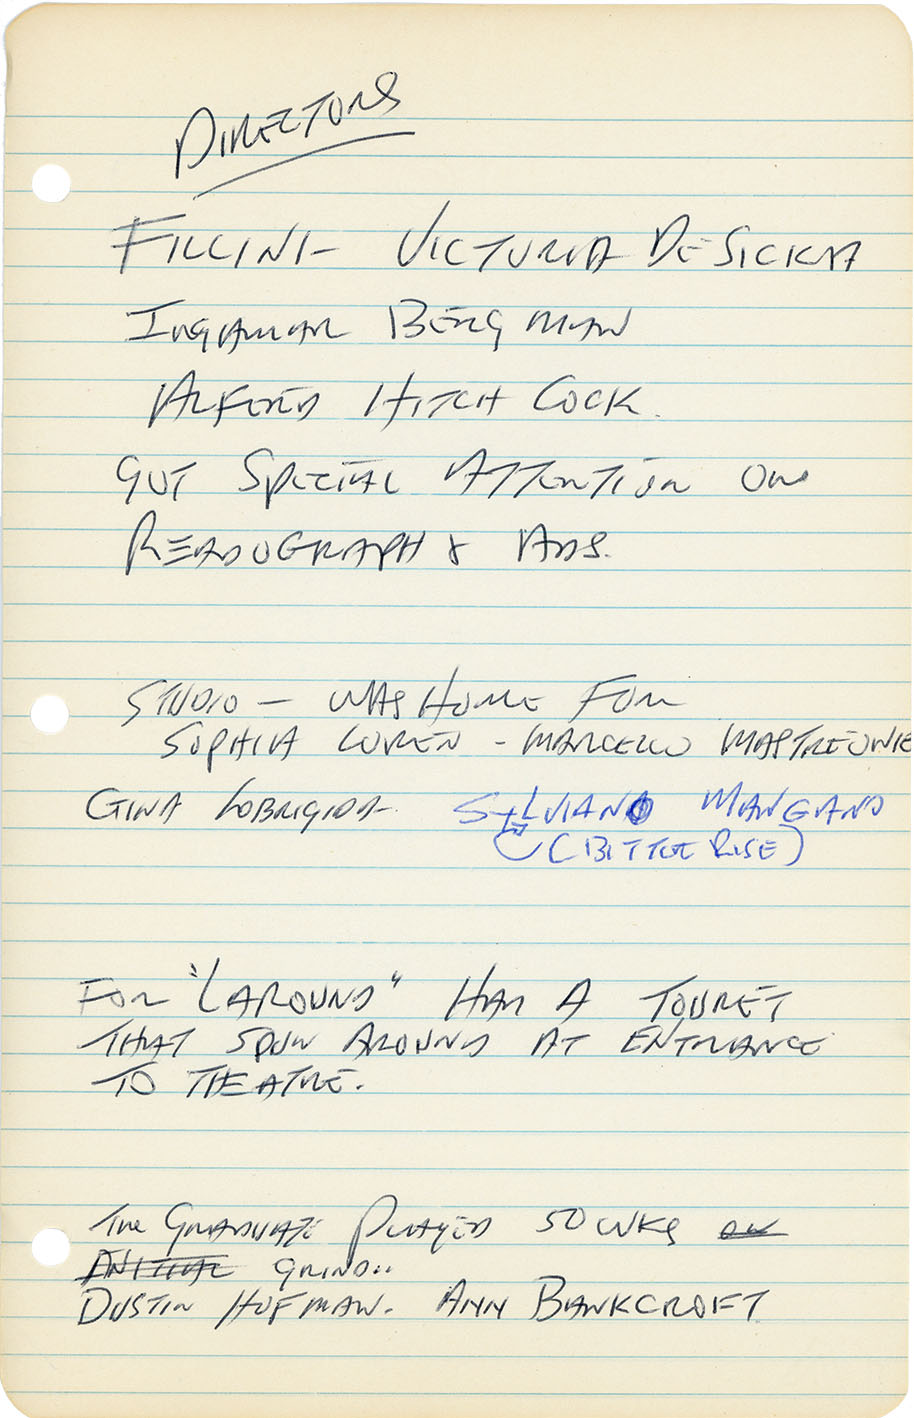 DIRECTORS
FILLINI - VICTURIA DE SICKA
INGAMAR BERGMAN
ALFRED HITCH COCK.
GOT SPECIAL ATTENTION ON
READOGRAPH & ADS.
STUDIO - WAS HOME FOR
SOPHIA LOREN - MARCELLO MASTREONIE
GINA LOBRIGIDA - SYLVIANO MANGANO
(BITTER RISE)
FOR "LAROUND" HAD A TOURET
THAT SPUN AROUND AT ENTRANCE
TO THEATRE.
THE GRADUATE PLAYED 50 WKS ON
GRIND..
DUSTIN HOFMAN. ANN BANKCROFT